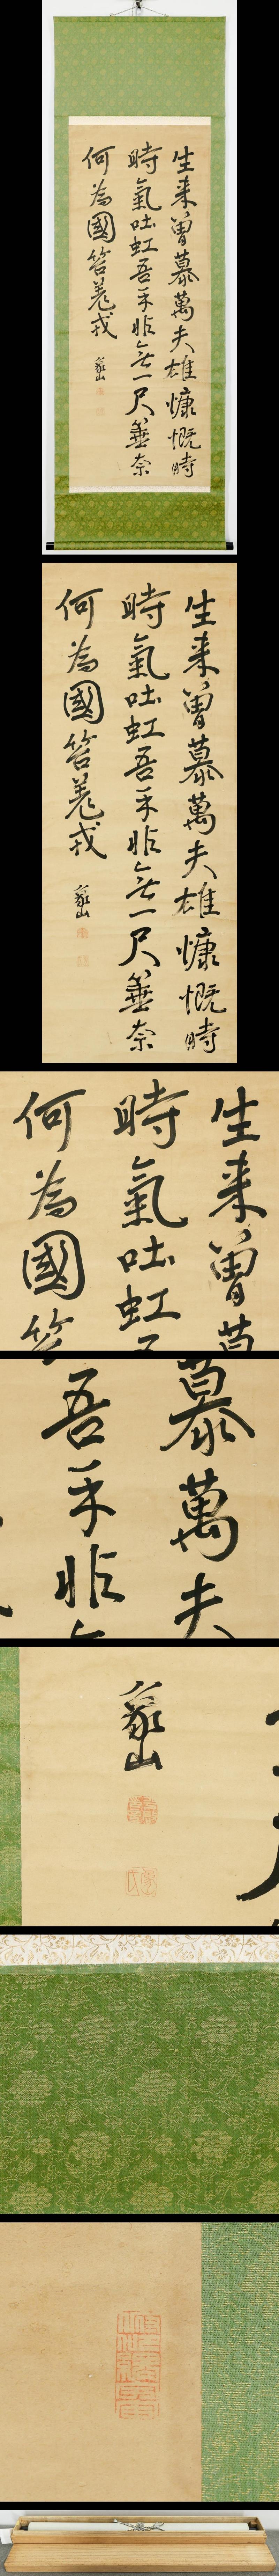 生来曽慕萬夫雄慷慨時
時氣吐虹吾手非無一尺垂奈
何為國答羌戎
象山